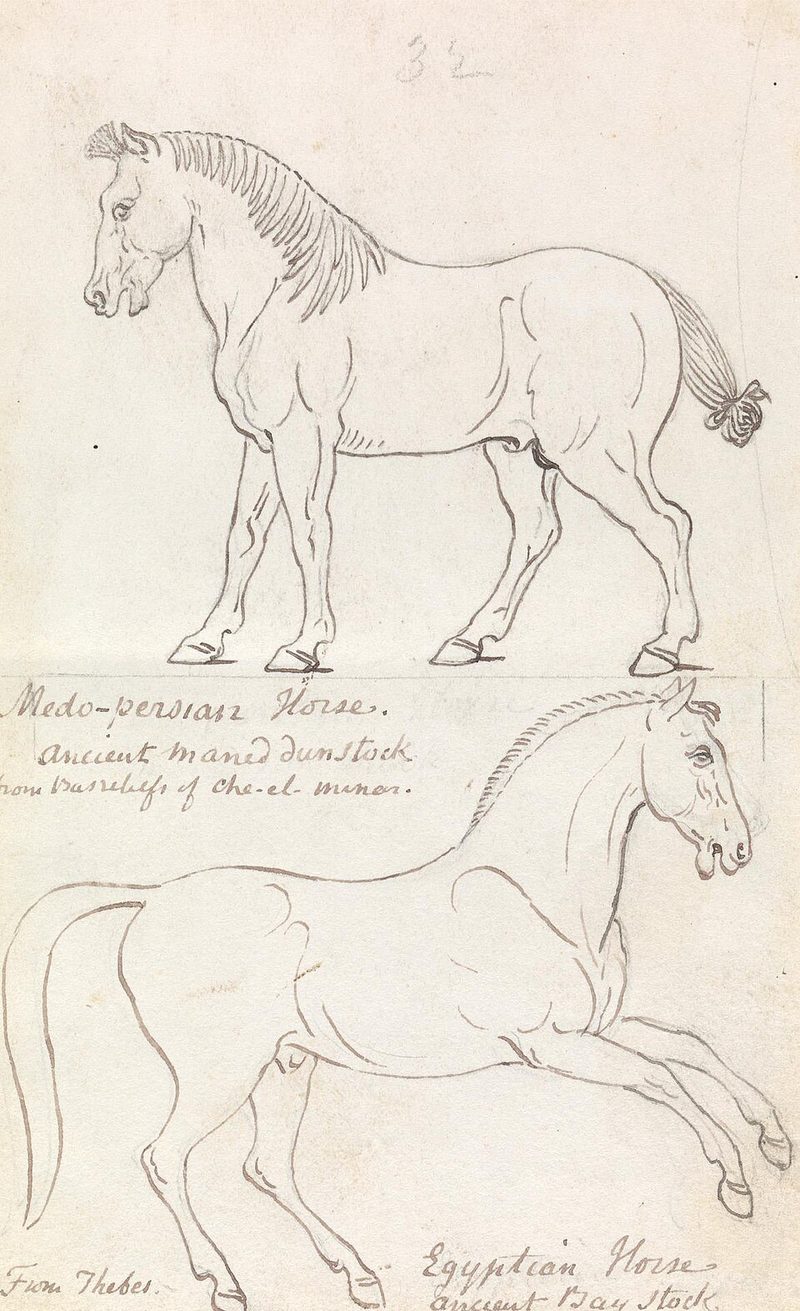 32
Medo-persian Horse.
ancient maned dun stock
from Basreliefs of Che-el-minar.
From Thebes.
Egyptian Horse
ancient Bay stock